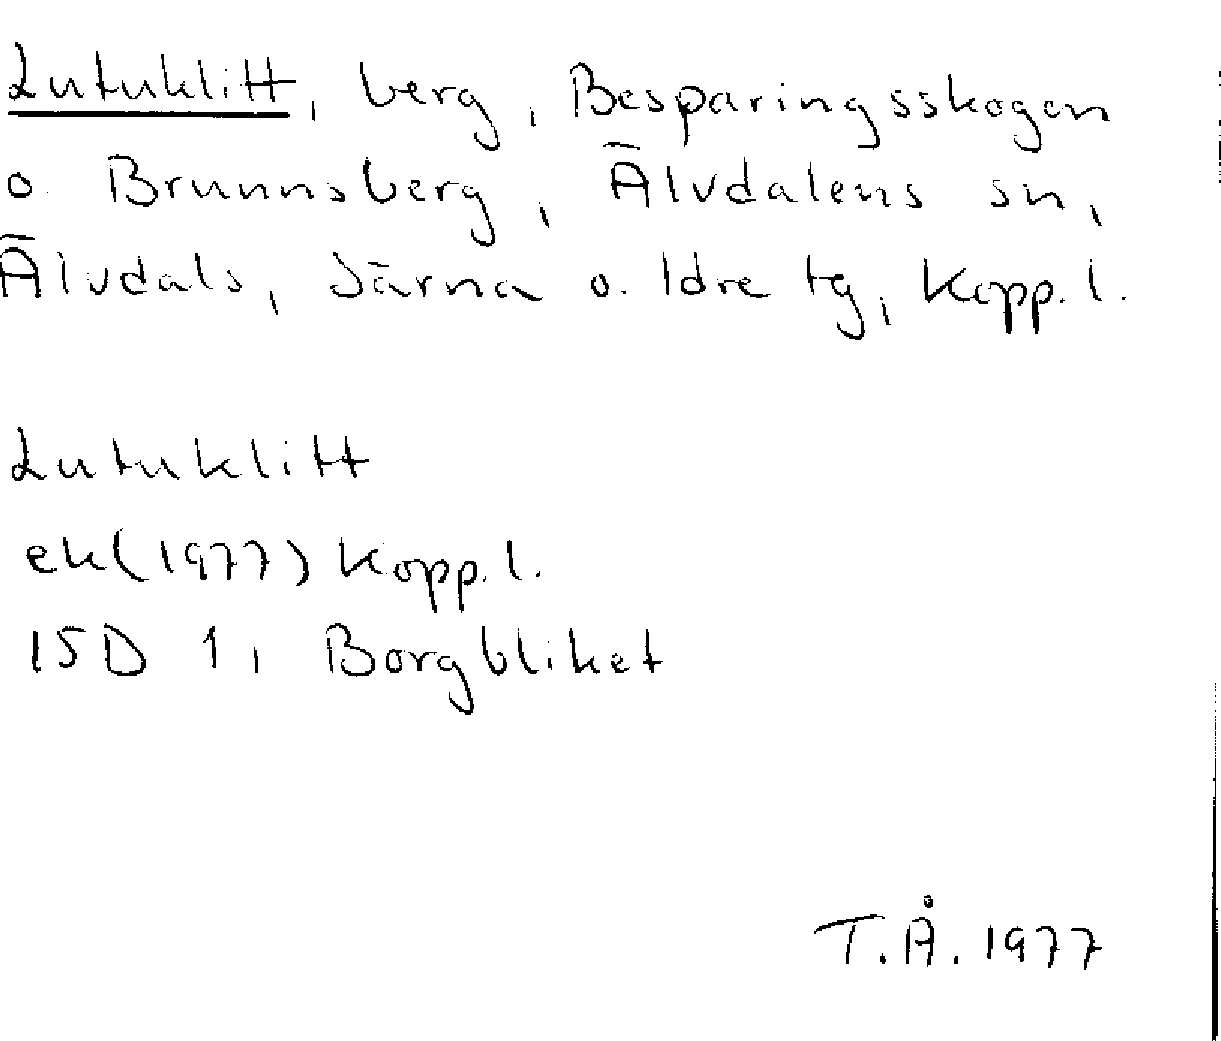 Lutuklitt, berg, Besparingsskogen
o. Brunnsberg, Älvdalens sn,
Älvdals, Särna o. Idre tg, Kopp. l.
Lutuklitt
ek(1977) Kopp. l.
15D 1i Borgbliket
T.Å. 1977